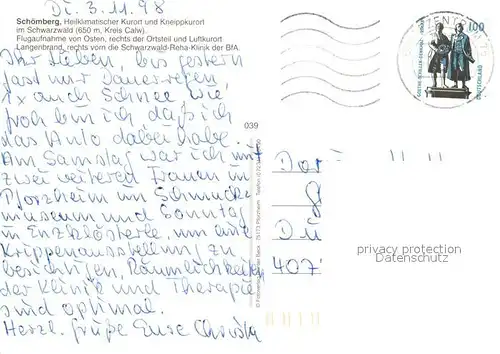 Di. 3.11.98
Schömberg, Heilklimatischer Kurort und Kneippkurort
im Schwarzwald (650 m, Kreis Calw).
Flugaufnahme von Osten, rechts der Ortsteil und Luftkurort
Langenbrand, rechts vorn die Schwarzwald-Reha-Klinik der BfA.
Ihr Lieben, bis gestern
fast nur Dauerregen
1x auch Schnee. Wie
froh bin ich daß ich
das Auto dabei habe.
Am Samstag war ich mit
zwei weiteren Frauen in
Pforzheim im Schmuck-
museum und Sonntag
in Enzklösterle, um eine
Krippenausstellung zu
besichtigen. Räumlichkeiten
der Klinik und Therapie
sind optimal.
Herzl. Grüße Eure
100
GOETHE-SCHILLER-DENKMAL
DEUTSCHLAND
039
75173 Pforzheim
Dor
Dü
407
privacy protection
Datenschutz